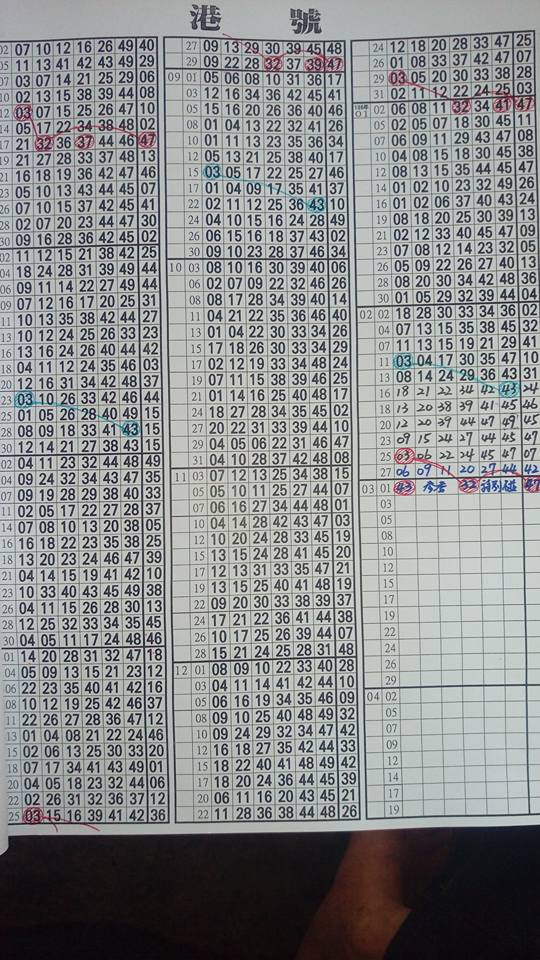 港 號
02 07 10 12 16 26 49 40
05 11 13 41 42 43 49 29
07 03 07 14 21 25 29 06
10 02 13 15 38 39 44 08
03 07 15 25 26 47 10
14 05 22 34 38 48 02
17 21 32 36 37 44 46 47
19 21 27 28 33 37 48 13
21 16 18 19 36 42 47 46
23 05 10 13 43 44 45 07
26 07 10 15 37 42 45 41
28 02 07 20 23 44 47 30
30 09 16 28 36 42 45 02
02 11 12 15 21 38 42 25
04 18 24 28 31 39 49 44
06 09 11 14 22 27 49 44
09 07 12 16 17 20 25 31
11 10 13 35 38 42 44 27
13 10 12 24 25 26 33 23
16 13 16 24 26 40 44 42
18 04 11 12 24 35 46 03
20 12 16 31 34 42 48 37
23 03 10 26 33 42 46 44
25 01 05 26 28 40 49 15
28 08 09 18 33 41 43 15
30 12 14 21 27 38 43 15
02 04 11 23 32 44 48 49
04 09 24 32 34 43 47 35
07 09 19 28 29 38 40 33
11 02 05 17 22 27 28 37
14 07 08 10 13 20 38 05
16 16 18 22 23 35 38 25
18 13 20 23 24 46 47 39
21 04 14 15 19 41 42 10
23 10 33 40 43 45 49 38
26 04 11 15 26 28 30 13
28 12 25 32 33 34 35 45
30 04 05 11 17 24 48 46
01 14 20 28 31 32 47 18
04 05 09 13 15 21 23 12
06 22 23 35 40 41 42 16
08 10 12 19 25 42 46 37
11 22 26 27 28 36 47 12
13 01 04 08 21 22 24 46
15 02 06 13 25 30 33 20
18 07 17 34 41 43 49 01
20 04 05 18 23 32 44 06
22 02 26 31 32 36 37 12
25 03 15 16 39 41 42 36
27 09 13 29 30 39 45 48
29 09 22 28 32 37 39 47
09 01 05 06 08 10 31 36 17
03 12 16 34 36 42 45 41
05 15 16 20 26 36 40 46
08 01 04 13 22 32 41 26
10 01 11 13 23 35 36 34
12 05 13 21 25 38 40 17
15 03 05 17 22 25 27 46
17 01 04 09 17 35 41 37
22 02 11 12 25 36 43 10
24 04 10 15 16 24 28 49
26 06 15 16 18 37 43 02
30 09 10 23 28 37 46 34
10 03 08 10 16 30 39 40 06
06 02 07 09 22 32 46 26
08 08 17 28 34 39 40 14
11 04 21 22 35 36 46 40
13 01 04 22 30 33 34 26
15 17 18 26 30 33 34 29
17 02 12 19 33 34 48 24
19 07 11 15 38 39 46 25
21 01 14 16 25 40 48 17
24 18 27 28 34 35 45 02
27 20 22 30 31 33 44 08
29 04 05 06 22 31 46 47
31 04 10 28 37 42 48 08
11 03 07 12 13 25 34 38 15
05 05 10 11 25 27 44 07
07 06 16 27 34 44 48 01
10 04 14 28 42 43 47 03
12 10 20 24 28 33 45 19
15 13 15 24 28 41 45 20
17 12 13 31 33 35 47 21
19 13 15 25 40 41 48 19
22 09 20 30 33 38 39 37
24 17 21 22 36 41 44 38
26 10 17 25 26 39 44 07
28 15 21 24 25 28 31 48
12 01 08 09 10 22 33 40 28
03 04 11 14 41 42 44 10
05 06 16 19 34 35 46 09
08 09 10 25 40 48 49 32
10 09 24 29 32 34 47 42
12 16 18 27 35 42 44 33
15 18 22 40 41 48 49 42
17 18 20 24 36 44 45 39
20 06 11 16 20 43 45 21
22 11 28 36 38 44 48 26
24 12 18 20 28 33 47 25
26 01 08 33 37 42 47 07
29 03 05 20 30 33 38 28
31 02 11 12 22 24 25 03
01 02 06 08 11 32 34 41 47
05 02 05 07 18 30 45 11
07 06 09 11 29 43 47 08
10 04 08 15 18 30 45 38
12 08 13 15 35 44 45 47
14 01 02 10 23 32 49 26
16 01 02 06 37 40 43 24
19 08 18 20 25 30 39 13
21 02 12 33 40 45 47 09
23 07 08 12 14 23 32 05
26 05 09 22 26 27 40 13
28 08 20 30 34 42 48 36
30 01 05 29 32 39 44 04
02 02 18 28 30 33 34 36 02
04 07 13 15 35 38 45 32
07 11 13 15 19 21 29 41
11 03 04 17 30 35 47 10
13 08 14 24 29 36 43 31
16 18 21 22 34 42 43 24
18 13 20 38 39 41 45 46
20 12 33 39 44 47 49 45
23 09 15 24 27 44 45 47
25 03 06 22 24 45 47 07
27 06 09 11 20 27 44 42
03 01 43 參考 32 特別號 47
03
05
08
10
12
15
17
19
22
24
26
29
04 02
05
07
09
12
14
17
19